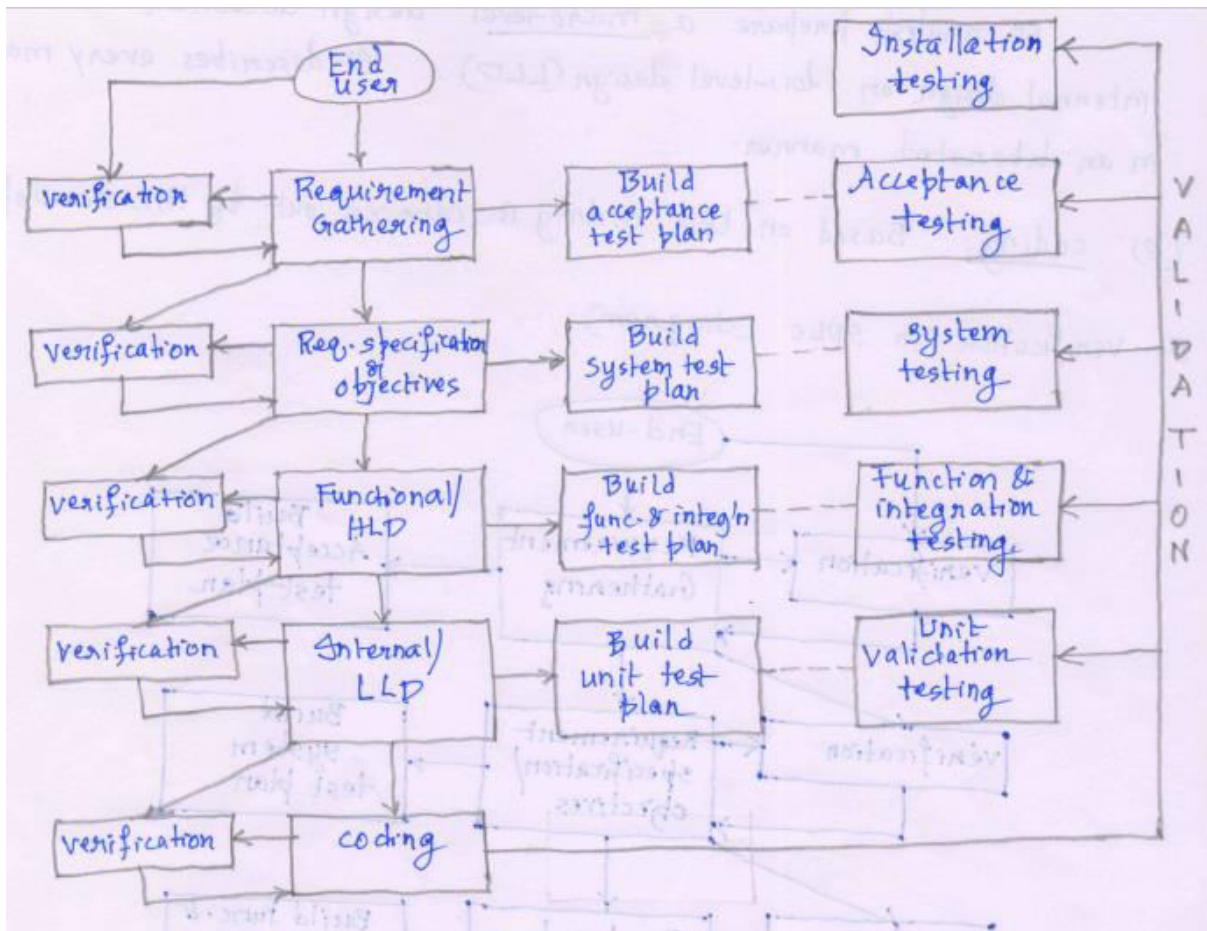 End
user
Installation
testing
verification
Requirement
Gathering
Build
acceptance
test plan
Acceptance
testing
verification
Req. specification
&
objectives
Build
System test
plan
System
testing
verification
Functional/
HLD
Build
func. & integ'n
test plan
Function &
integration
testing.
verification
Internal/
LLD
Build
unit test
plan
Unit
Validation
testing
verification
coding
VALIDATION